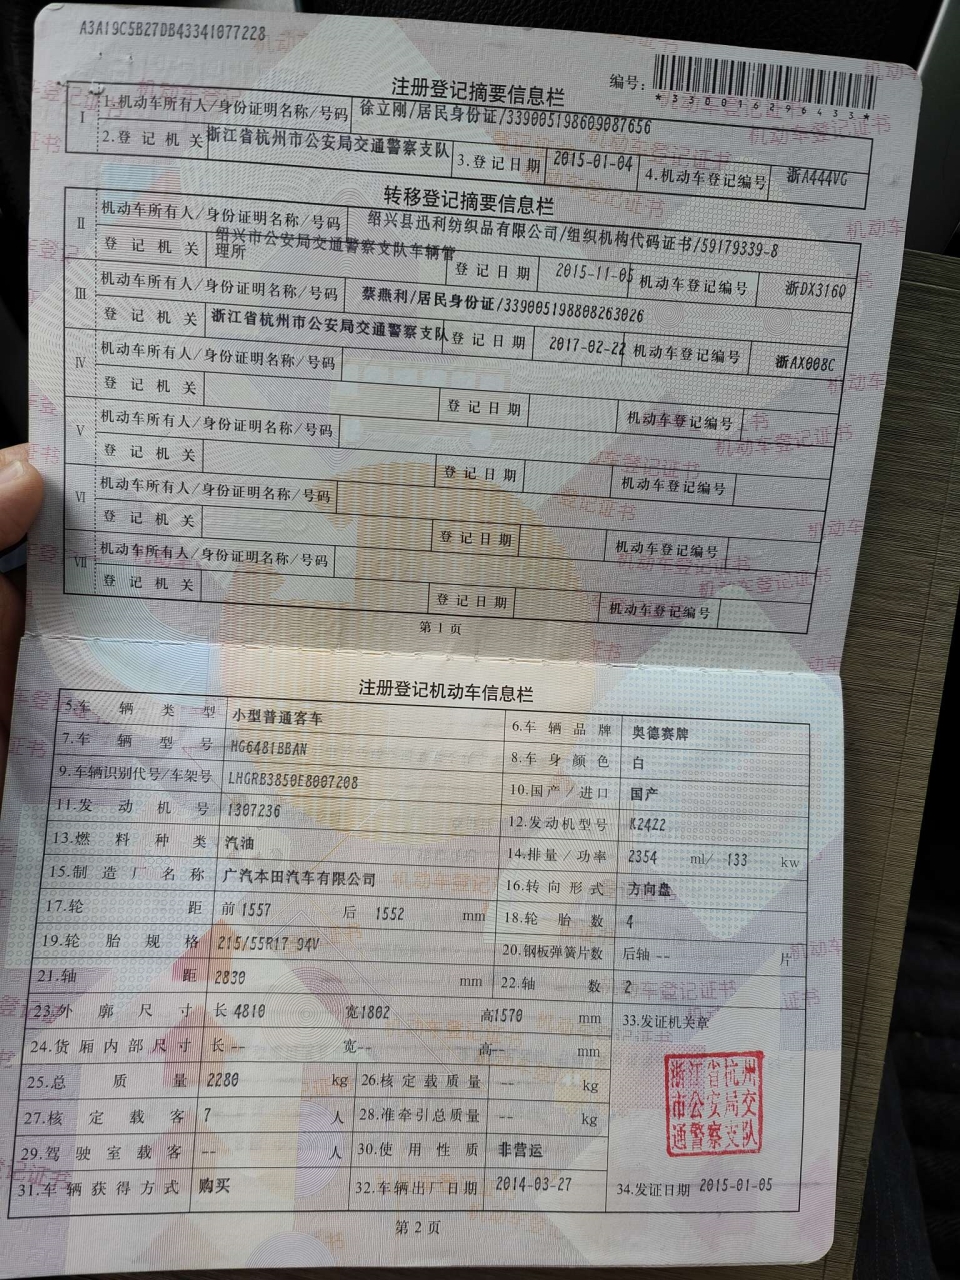 A3A19C5B27DB43341077228
编号：
*330016296433*
注册登记摘要信息栏
Ⅰ 1.机动车所有人/身份证明名称/号码 徐立刚/居民身份证/339005198609087656
2.登记机关 浙江省杭州市公安局交通警察支队 3.登记日期 2015-01-04 4.机动车登记编号 浙A444VG
转移登记摘要信息栏
Ⅱ 机动车所有人/身份证明名称/号码 绍兴县迅利纺织品有限公司/组织机构代码证书/59179339-8
登记机关 绍兴市公安局交通警察支队车辆管理所 登记日期 2015-11-05 机动车登记编号 浙DX316Q
Ⅲ 机动车所有人/身份证明名称/号码 蔡燕利/居民身份证/339005198808263026
登记机关 浙江省杭州市公安局交通警察支队 登记日期 2017-02-22 机动车登记编号 浙AX008C
Ⅳ 机动车所有人/身份证明名称/号码
登记机关 登记日期 机动车登记编号
Ⅴ 机动车所有人/身份证明名称/号码
登记机关 登记日期 机动车登记编号
Ⅵ 机动车所有人/身份证明名称/号码
登记机关 登记日期 机动车登记编号
Ⅶ 机动车所有人/身份证明名称/号码
登记机关 登记日期 机动车登记编号
第1页
注册登记机动车信息栏
5.车辆类型 小型普通客车 6.车辆品牌 奥德赛牌
7.车辆型号 HG6481BBAN 8.车身颜色 白
9.车辆识别代号/车架号 LHGRB3850E8007208 10.国产/进口 国产
11.发动机号 1307236 12.发动机型号 K24Z2
13.燃料种类 汽油 14.排量/功率 2354 ml/ 133 kw
15.制造厂名称 广汽本田汽车有限公司 16.转向形式 方向盘
17.轮距 前 1557 后 1552 mm 18.轮胎数 4
19.轮胎规格 215/55R17 94V 20.钢板弹簧片数 后轴 -- 片
21.轴距 2830 mm 22.轴数 2
23.外廓尺寸 长 4810 宽1802 高1570 mm 33.发证机关章
24.货厢内部尺寸 长 -- 宽-- 高-- mm
25.总质量 2280 kg 26.核定载质量 -- kg
27.核定载客 7 人 28.准牵引总质量 -- kg
29.驾驶室载客 -- 人 30.使用性质 非营运
浙江省杭州
市公安局交
通警察支队
31.车辆获得方式 购买 32.车辆出厂日期 2014-03-27 34.发证日期 2015-01-05
第2页